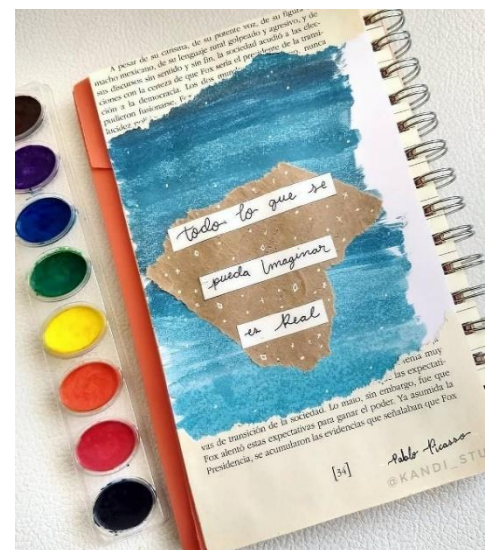 A pesar de su cintura, de su potente voz, de su figura
macho mexicano, de su lenguaje rural golpeado y agresivo, y de
sus discursos sin sentido y sin fin, la sociedad acudió a las elec-
ciones con la certeza de que Fox sería el presidente de la transi-
ción a la democracia. Los dos
pudieron fusionarse. nunca
lucidez
todo lo que se
pueda Imaginar
es Real
venía muy
las expectati-
vas de transición de la sociedad. Lo malo, sin embargo, fue que
Fox alentó estas expectativas para ganar el poder. Ya asumida la
Presidencia, se acumularon las evidencias que señalaban que Fox
[34]
Pablo Picasso
@KANDI_STU